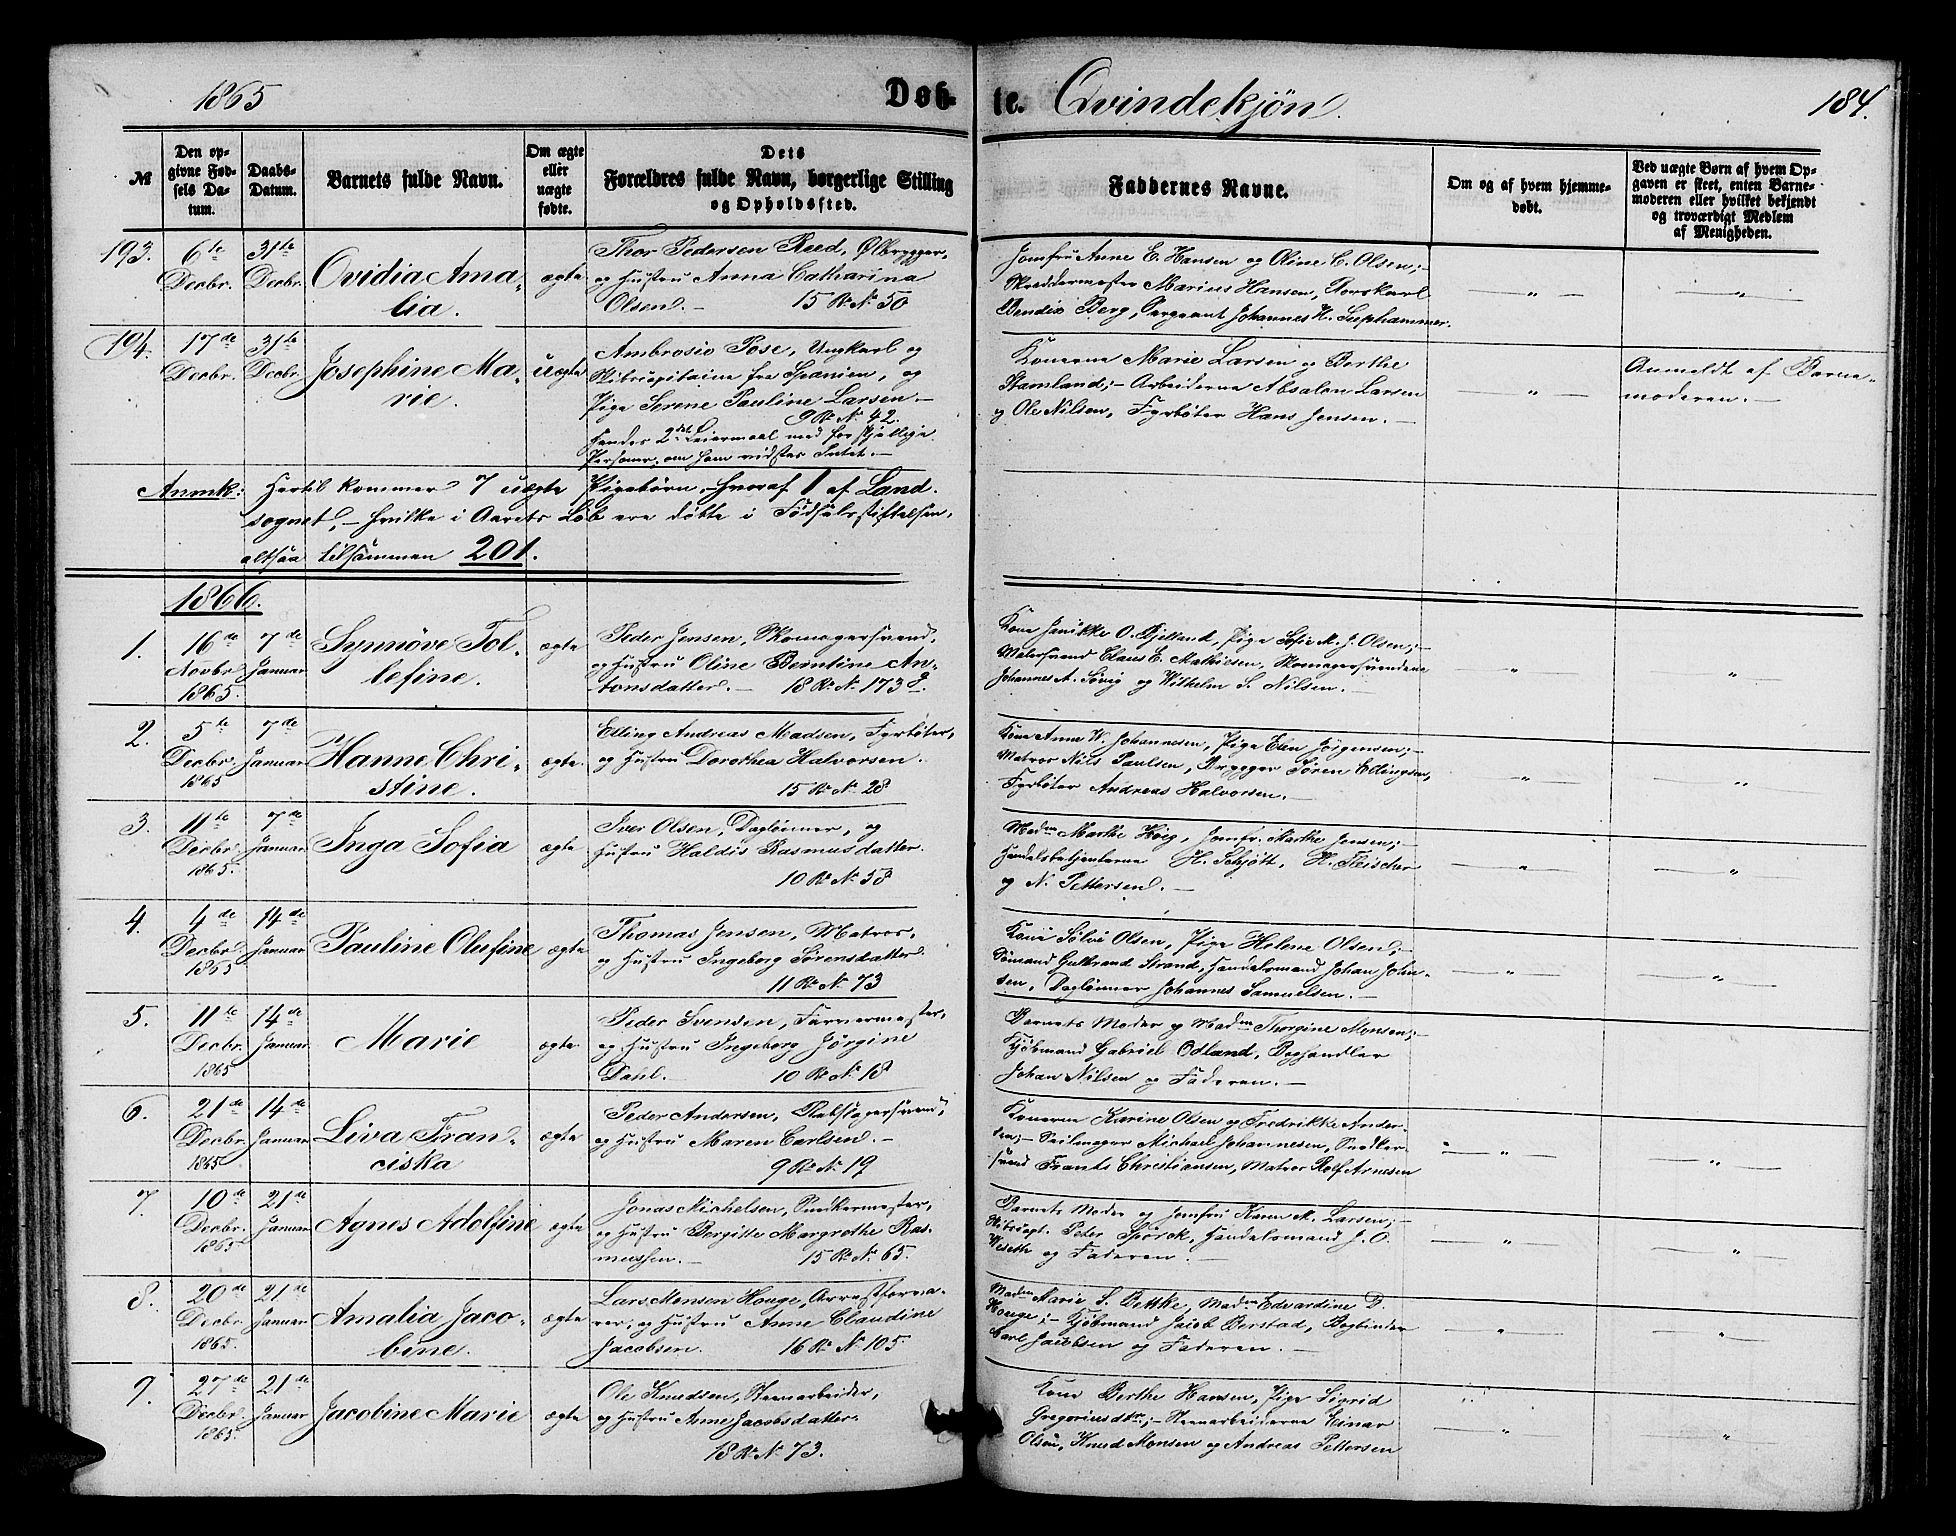 1865
Døb-
te. Qvindekjøn.
184.
№
Den op-
givne Fød-
sels Da-
tum.
Daabs-
Datum.
Barnets fulde Navn.
Om ægte
eller
uægte
fødte.
Dets
Forældres fulde Navn, borgerlige Stilling
og Opholdssted.
Faddernes Navne.
Om og af hvem hjemme-
døbt.
Ved uægte Børn af hvem Op-
gaven er skeet, enten Barne-
moderen eller hvilket bekjendt
og troværdigt Medlem
af Menigheden.
193.
6te
Decbr.
31te
Decbr.
Ovidia Ama-
lia.
ægte
Thor Pedersen Reed, Ølbrygger,
og Hustru Anna Catharina
Olsen. 15 R. N. 50
Jomfru Anne E. Hansen og Oline C. Olsen;
Skræddermester Marius Hansen,
Bendix Berg, Sergeant Johannes H.
194.
17de
Decbr.
31te
Decbr.
Josephine Ma-
rie.
uægte
Ambrosio Pose, Ungkarl og
Skibscapitaine fra Spanien, og
Pige Serene Pauline Larsen.
9 R. N. 42.
Hendes 2det Leiermaal med forskjellige
Personer, om ham vidstes Intet.
Konerne Marie Larsen og Berthe
Stamland; Arbeiderne Absalon Larsen
og Ole Nilsen, Fyrbøter Hans Jensen.
Anmeldt af Barne-
moderen.
Anmk: Hertil kommer 7 uægte Pigebørn, hvoraf 1 af Land-
sognet, hvilke i Aarets Løb ere døbte i Fødselsstiftelsen,
altsaa tilsammen 201.
1866.
1.
16de
Novbr.
1865.
7de
Januar
Synnøve Tol-
lefine.
ægte
Peder Jensen, Skomagersvend,
og Hustru Oline Berntine An-
tonsdatter. 18 R. N. 173
Kone Janikke O. Fjelland, Pige Sofie M. J. Olsen;
Malersvend Claus E. Mathiesen, Skomagersvendene
Johannes A. Søvig og Wilhelm S. Nilsen.
2.
5te
Decbr.
1865
7de
Januar
Hanne Chri-
stine.
ægte.
Elling Andreas Madsen, Fyrbøter,
og Hustru Dorothea Halvorsen.
15 R. N. 28
Kone Anne W. Johannesen, Pige Elen Jørgensen;
Matros Nils Paulsen, Brygger Søren Ellingsen,
Fyrbøter Andreas Halvorsen.
3.
11te
Decbr.
1865.
7de
Januar
Inga Sofia
ægte
Iver Olsen, Daglønner, og
Hustru Haldis Rasmusdatter.
10 R. N. 58
Madm Marthe Høeg, Jomfr. Marthe Jensen;
Handelsbetjenterne H. Schjøtt, H. Fleischer
og N. Pettersen.
4.
4de
Decbr.
1865
14de
Januar
Pauline Olufine
ægte
Thomas Jensen, Matros,
og Hustru Ingeborg Sørensdatter
11 R. N. 73
Kone Sølvi Olsen, Pige Helene Olsen;
Sømand Gulbrand Strand, Handelsmand Johan John-
sen, Daglønner Johannes Samuelsen.
5.
11te
Decbr.
1865
14de
Januar
Marie
ægte
Peder Svensen, Farvermester,
og Hustru Ingeborg Jørgine
Dahl. 10 R. N. 18
Barnets Moder og Madm Thorgine Monsen;
Kjøbmand Gabriel Odland, Boghandler
Johan Nilsen og Faderen.
6.
21de
Decbr.
1865
14de
Januar
Liva Fran-
ciska
ægte
Peder Andersen, Rebslagersvend,
og Hustru Maren Carlsen.
9 R. N. 19
Konerne Karine Olsen og Fredrikke Ander-
sen; Seilmager Michael Johannesen, Snedker-
svend Frants Christiansen, Matros Rolf Arnesen
7.
10de
Decbr.
1865
21de
Januar
Agnes Adolfine
ægte
Jonas Michelsen, Snedkermester,
og Hustru Bergitte Margrethe Ras-
mussen. 15 R. N. 65.
Barnets Moder og Jomfru Karen M. Larsen;
Skibscpt. Peter Spørck, Handelsmand J. O.
Weseth og Faderen.
8.
20de
Decbr
1865.
21de
Januar
Amalia Jaco-
bine.
ægte
Lars Monsen Houge, Arrestforva-
rer, og Hustru Anne Claudine
Jacobsen. 16 R. N. 105.
Madm Marie S. Bettke, Madm Edvardine D.
Houge; Kjøbmand Jacob Berstad, Bogbinder
Carl Jacobsen og Faderen.
9.
27de
Decbr.
1865.
21de
Januar
Jacobine Marie
ægte
Ole Knudsen, Steenarbeider,
og Hustru Anne Jacobsdatter.
18 R. N. 73.
Kone Berthe Hansen, Pige Sigrid
Gregoriusdtr; Steenarbeiderne Einar
Olsen, Knud Monsen og Andreas Pettersen